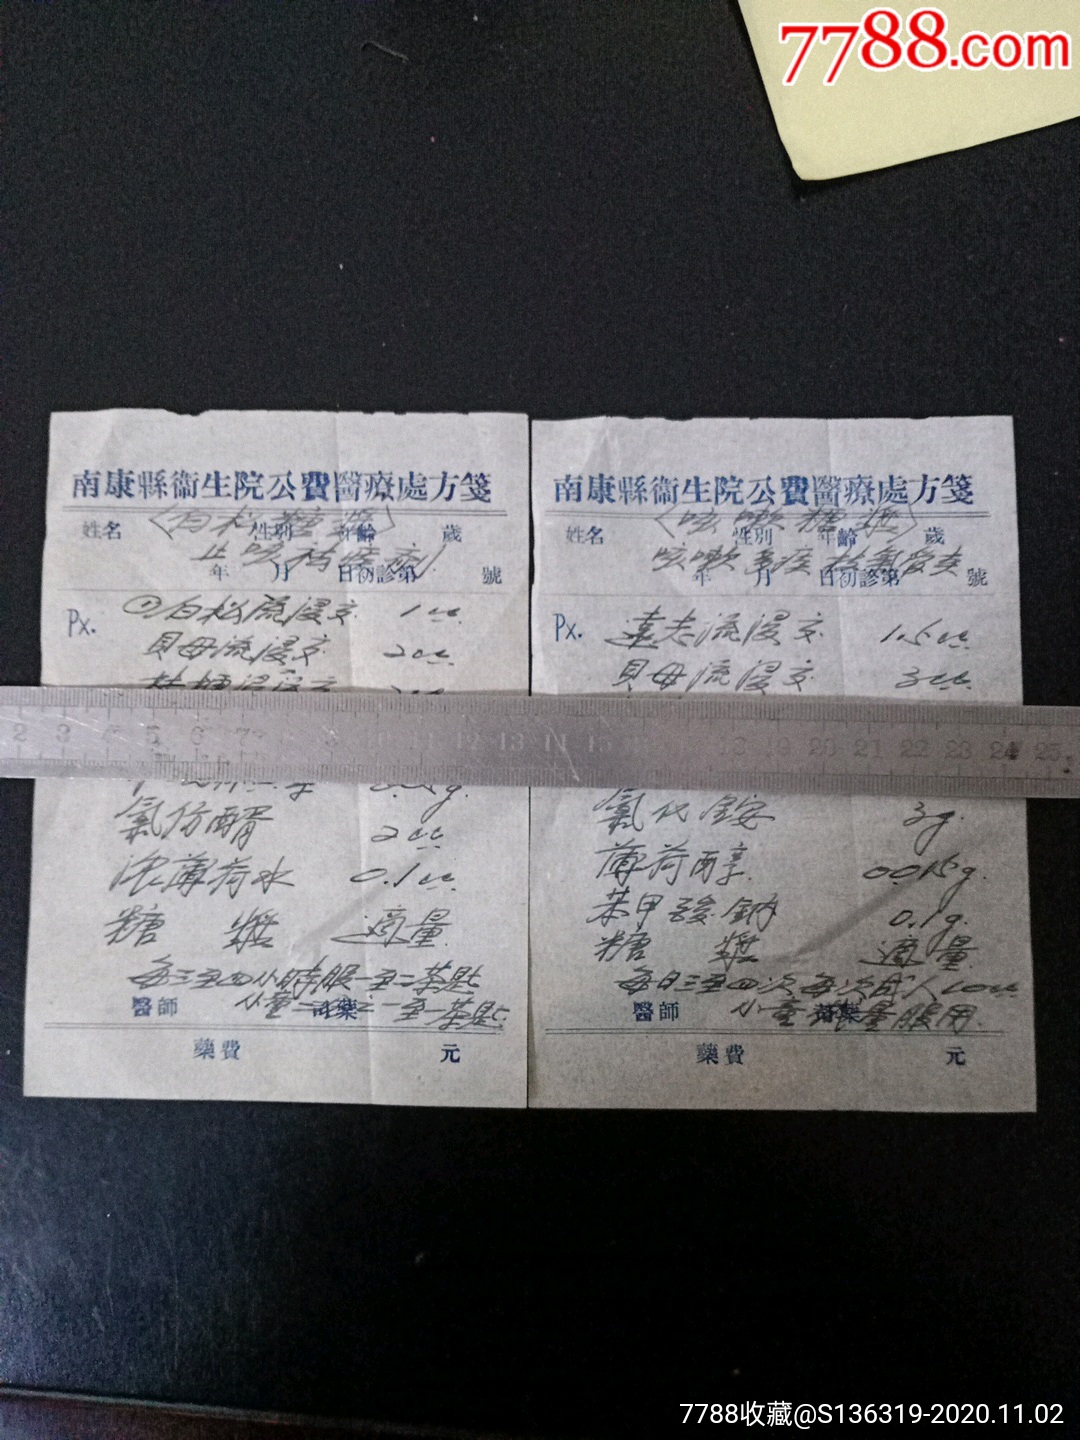 7788.com
南康縣衞生院公費醫療處方箋
姓名 性別 年齡 歲
〈白松糖漿〉
止咳祛痰剤
年 月 日初診第 號
Px.
①白松流浸膏 1cc.
貝母流浸膏 2cc.
桔梗流浸膏 2cc.
氯仿醑 2cc
濃薄荷水 0.1cc.
糖 漿 適量
每三至四小時服一至二茶匙
小童 之一至 茶匙
醫師 司藥
藥費 元
南康縣衞生院公費醫療處方箋
姓名 性別 年齡 歲
〈咳嗽糖漿〉
咳嗽多痰 支氣管炎
年 月 日初診第 號
Px.
遠志流浸膏 1.5cc
貝母流浸膏 3cc.
氯化銨 3g.
薄荷醇 0.015g.
苯甲酸鈉 0.1g.
糖 漿 適量
每日三至四次每次成人10cc
小童 量服用.
醫師 司藥
藥費 元
2 3 4 5 6 7 8 9 10 11 12 13 14 15 18 19 20 21 22 23 24 25
7788收藏@S136319-2020.11.02